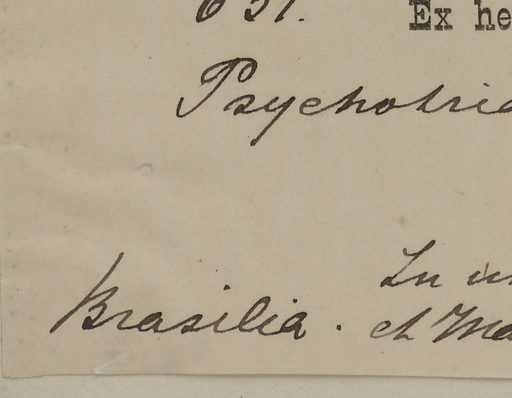 631. Ex he
Psychotria
In
Brasilia. et Ma